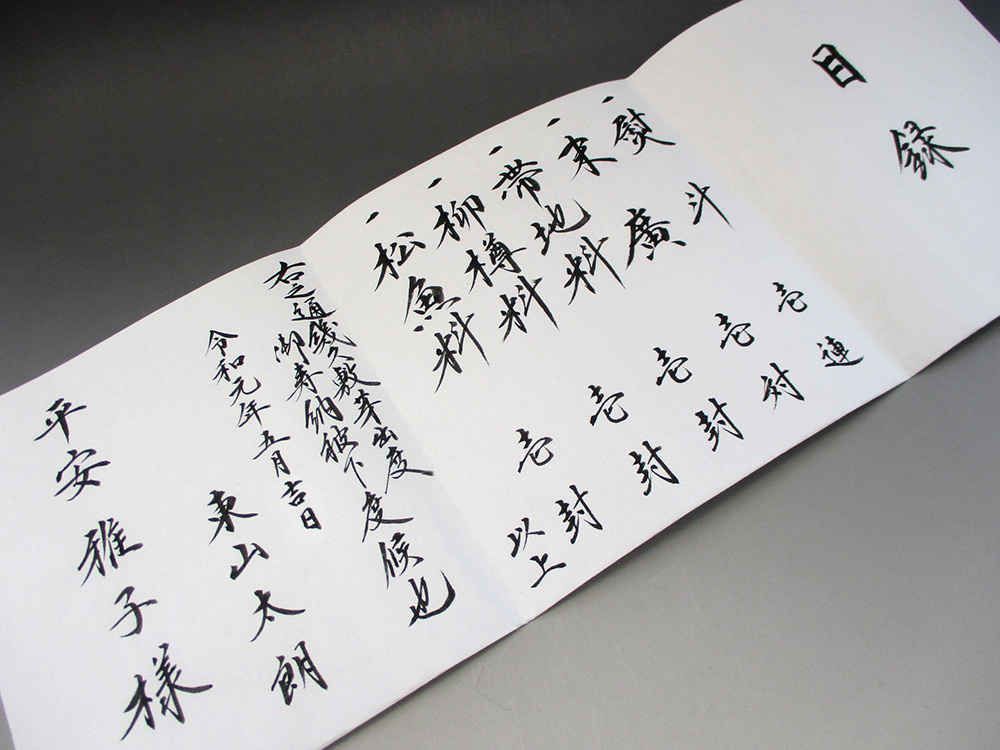 目録
、熨斗 壱連
、末廣 壱対
、帯地料 壱封
、柳樽料 壱封
、松魚料 壱封
以上
右之通幾久敷芽出度
御寿納被下度候也
令和元年五月吉日
東山太朗
平安雅子様